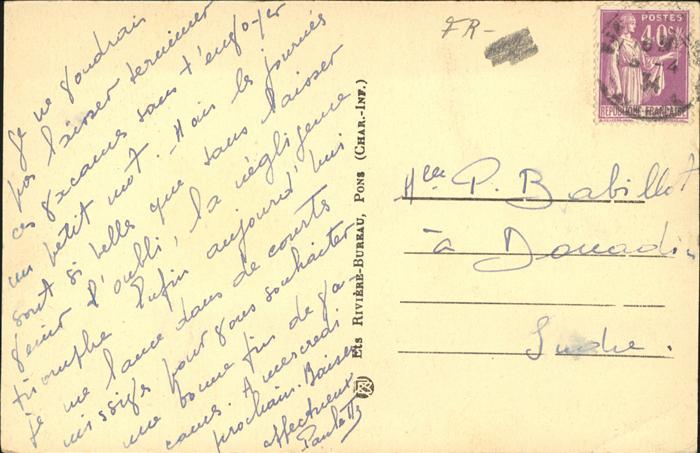 Je ne voudrais
pas laisser terminer
ces vacances sans t'envoyer
un petit mot. Mais les journées
sont si belles que sans laisser
venir l'oubli, la négligence
triomphe. Enfin aujourd'hui
je me lance dans de courts
missives pour vous souhaiter
une bonne fin de va-
cances. A mercredi
prochain. Baisers
affectueux
Paulette
Ets RIVIÈRE-BUREAU, PONS (CHAR.-INF.)
FR-
POSTES
40c
RÉPUBLIQUE FRANÇAISE
34
Mlle P. Babillot
à Douadic
Indre.